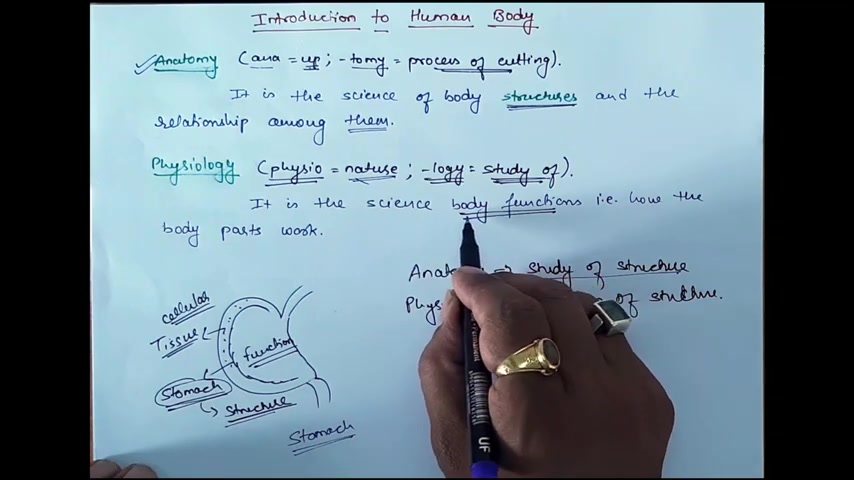 Introduction to Human Body
Anatomy (ana = up ; -tomy = process of cutting).
It is the science of body structures and the
relationship among them.
Physiology (physio = nature ; -logy = study of).
It is the science body functions i.e. how the
body parts work.
Anat => study of structure
Phys of structure.
cellular
Tissue
function
Stomach
structure
Stomach
UF